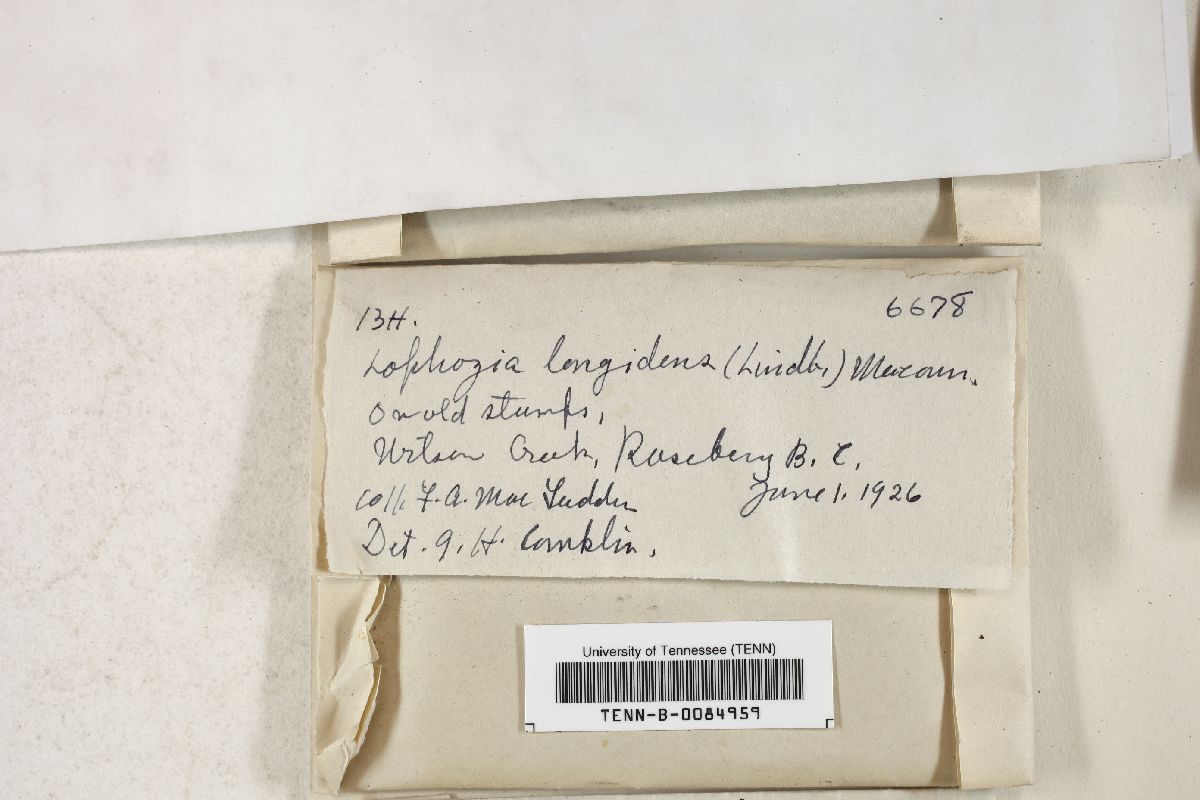 13H. 6678
Lophozia longidens (Lindb.) Macoun.
On old stumps,
Wilson Creek, Rosebery B. C.
Coll. F. A. Mac Fadden June 1. 1926
Det. G. H. Conklin.
University of Tennessee (TENN)
TENN-B-0084959